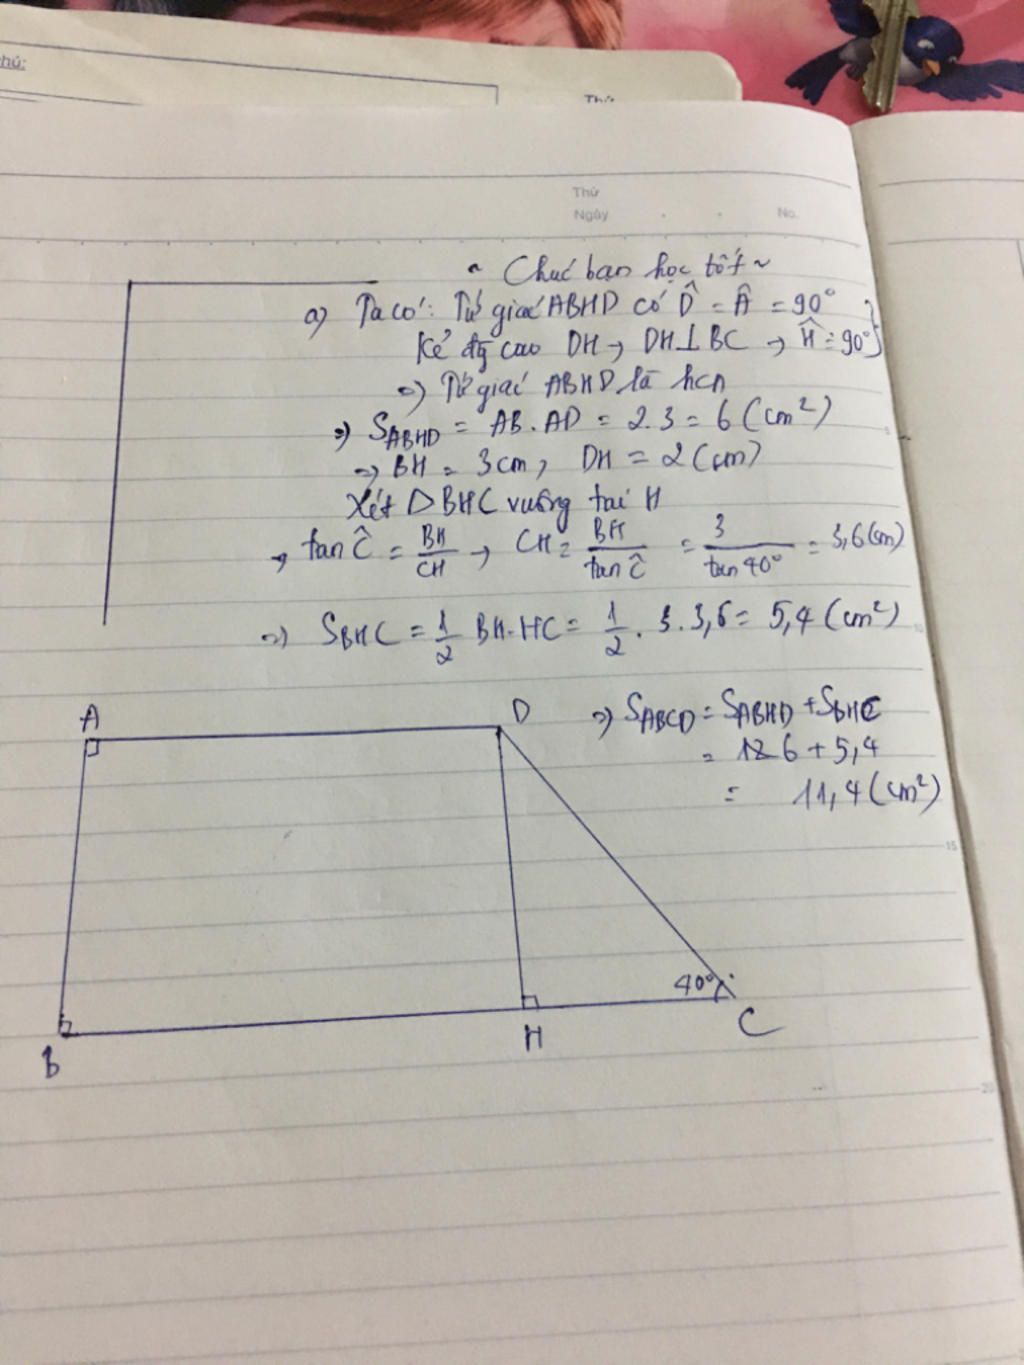 hú:
Thứ
Thứ
Ngày
No.
~ Chúc bạn học tốt ~
a) Ta có: Tứ giác ABHD có D̂ = Â = 90°
Kẻ đg cao DH → DH ⊥ BC → Ĥ = 90° }
=> Tứ giác ABHD là hcn
=> S_ABHD = AB.AD = 2.3 = 6 (cm²)
=> BH = 3cm, DH = 2 (cm)
Xét Δ BHC vuông tại H
→ tan Ĉ = BH/CH → CH = BH/tan Ĉ = 3/tan 40° = 3,6 (cm)
=> S_BHC = 1/2 BH.HC = 1/2 . 3.3,6 = 5,4 (cm²)
=> S_ABCD = S_ABHD + S_BHC
= 6 + 5,4
= 11,4 (cm²)
A
D
40°
B
H
C
15
20